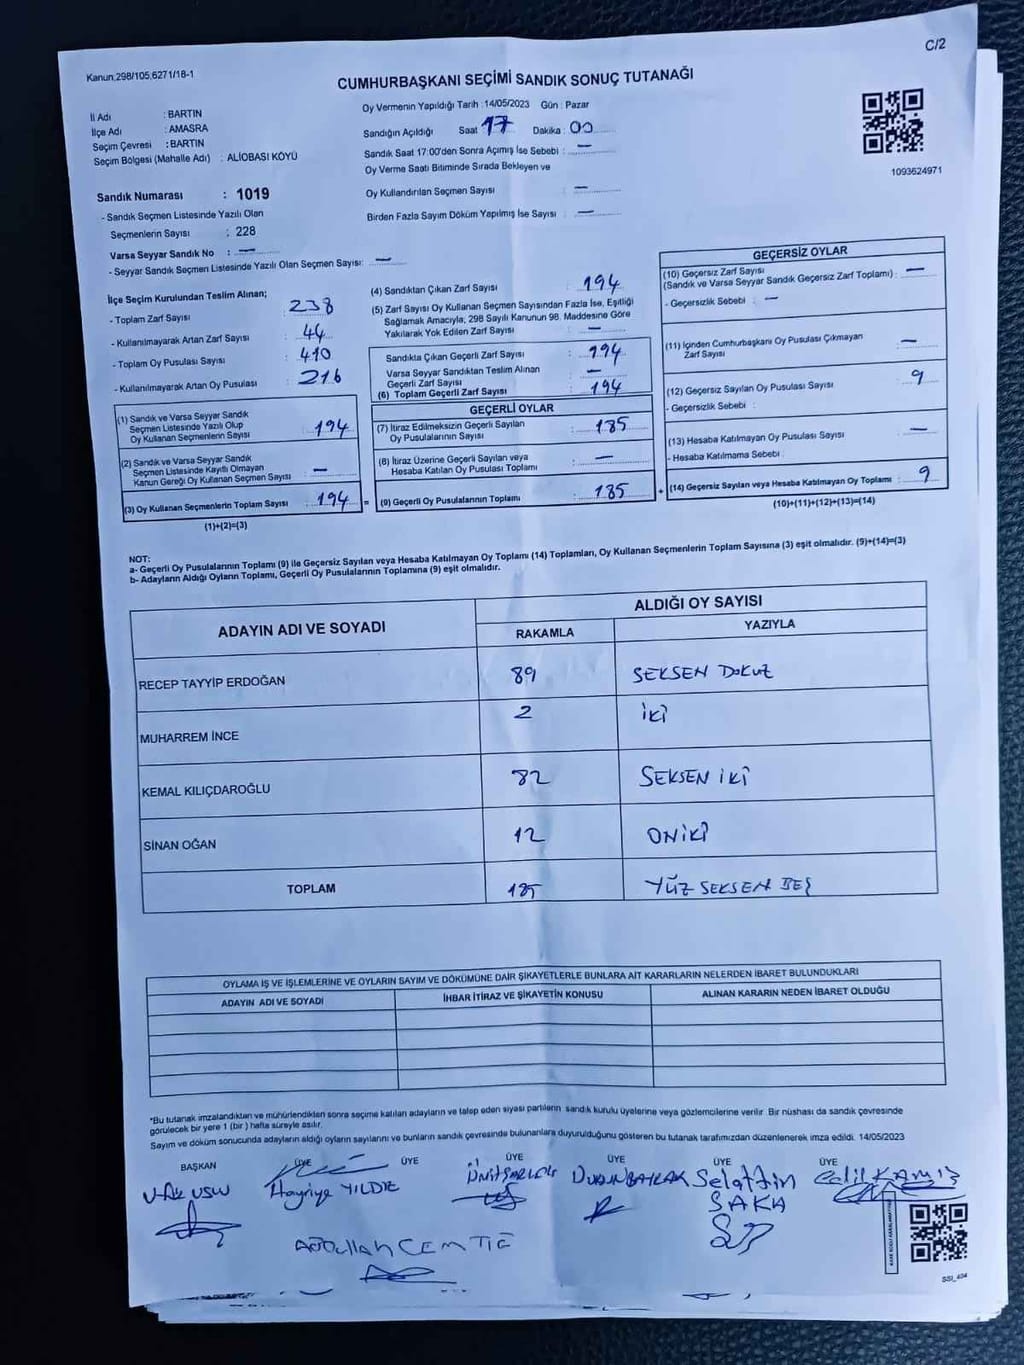 C/2
Kanun:298/105;6271/18-1
CUMHURBAŞKANI SEÇİMİ SANDIK SONUÇ TUTANAĞI
İl Adı : BARTIN
İlçe Adı : AMASRA
Seçim Çevresi : BARTIN
Seçim Bölgesi (Mahalle Adı) : ALİOBASI KÖYÜ
Oy Vermenin Yapıldığı Tarih :14/05/2023 Gün : Pazar
Sandığın Açıldığı Saat 17 Dakika : 00
Sandık Saat 17:00'den Sonra Açımış İse Sebebi : —
Oy Verme Saati Bitiminde Sırada Bekleyen ve
Oy Kullandırılan Seçmen Sayısı —
Birden Fazla Sayım Döküm Yapılmış İse Sayısı : —
1093624971
Sandık Numarası : 1019
- Sandık Seçmen Listesinde Yazılı Olan
Seçmenlerin Sayısı : 228
Varsa Seyyar Sandık No : —
- Seyyar Sandık Seçmen Listesinde Yazılı Olan Seçmen Sayısı: —
İlçe Seçim Kurulundan Teslim Alınan;
- Toplam Zarf Sayısı : 238
- Kullanılmayarak Artan Zarf Sayısı : 44
- Toplam Oy Pusulası Sayısı : 410
- Kullanılmayarak Artan Oy Pusulası : 216
(1) Sandık ve Varsa Seyyar Sandık
Seçmen Listesinde Yazılı Olup
Oy Kullanan Seçmenlerin Sayısı : 194
(2) Sandık ve Varsa Seyyar Sandık
Seçmen Listesinde Kayıtlı Olmayan
Kanun Gereği Oy Kullanan Seçmen Sayısı : —
(3) Oy Kullanan Seçmenlerin Toplam Sayısı : 194 =
(1)+(2)=(3)
(4) Sandıktan Çıkan Zarf Sayısı : 194
(5) Zarf Sayısı Oy Kullanan Seçmen Sayısından Fazla İse, Eşitliği
Sağlamak Amacıyla, 298 Sayılı Kanunun 98. Maddesine Göre
Yakılarak Yok Edilen Zarf Sayısı : —
Sandıkta Çıkan Geçerli Zarf Sayısı : 194
Varsa Seyyar Sandıktan Teslim Alınan
Geçerli Zarf Sayısı : —
(6) Toplam Geçerli Zarf Sayısı : 194
GEÇERLİ OYLAR
(7) İtiraz Edilmeksizin Geçerli Sayılan
Oy Pusulalarının Sayısı : 185
(8) İtiraz Üzerine Geçerli Sayılan veya
Hesaba Katılan Oy Pusulası Toplamı : —
(9) Geçerli Oy Pusulalarının Toplamı : 185 +
GEÇERSİZ OYLAR
(10) Geçersiz Zarf Sayısı
(Sandık ve Varsa Seyyar Sandık Geçersiz Zarf Toplamı) : —
- Geçersizlik Sebebi : —
(11) İçinden Cumhurbaşkanı Oy Pusulası Çıkmayan
Zarf Sayısı : —
(12) Geçersiz Sayılan Oy Pusulası Sayısı : 9
- Geçersizlik Sebebi :
(13) Hesaba Katılmayan Oy Pusulası Sayısı : —
- Hesaba Katılmama Sebebi :
(14) Geçersiz Sayılan veya Hesaba Katılmayan Oy Toplamı : 9
(10)+(11)+(12)+(13)=(14)
NOT:
a- Geçerli Oy Pusulalarının Toplamı (9) ile Geçersiz Sayılan veya Hesaba Katılmayan Oy Toplamı (14) Toplamları, Oy Kullanan Seçmenlerin Toplam Sayısına (3) eşit olmalıdır. (9)+(14)=(3)
b- Adayların Aldığı Oyların Toplamı, Geçerli Oy Pusulalarının Toplamına (9) eşit olmalıdır.
ADAYIN ADI VE SOYADI
ALDIĞI OY SAYISI
RAKAMLA YAZIYLA
RECEP TAYYİP ERDOĞAN 89 SEKSEN DOKUZ
MUHARREM İNCE 2 İKİ
KEMAL KILIÇDAROĞLU 82 SEKSEN İKİ
SİNAN OĞAN 12 ONİKİ
TOPLAM 185 YÜZ SEKSEN BEŞ
OYLAMA İŞ VE İŞLEMLERİNE VE OYLARIN SAYIM VE DÖKÜMÜNE DAİR ŞİKAYETLERLE BUNLARA AİT KARARLARIN NELERDEN İBARET BULUNDUKLARI
ADAYIN ADI VE SOYADI İHBAR İTİRAZ VE ŞİKAYETİN KONUSU ALINAN KARARIN NEDEN İBARET OLDUĞU
*Bu tutanak imzalandıktan ve mühürlendikten sonra seçime katılan adayların ve talep eden siyasi partilerin sandık kurulu üyelerine veya gözlemcilerine verilir. Bir nüshası da sandık çevresinde
görülecek bir yere 1 (bir ) hafta süreyle asılır.
Sayım ve döküm sonucunda adayların aldığı oyların sayılarını ve bunların sandık çevresinde bulunanlara duyurulduğunu gösteren bu tutanak tarafımızdan düzenlenerek imza edildi. 14/05/2023
BAŞKAN ÜYE ÜYE ÜYE ÜYE ÜYE ÜYE
Hayriye YILDIZ Selattin
SAKA
SSI_404